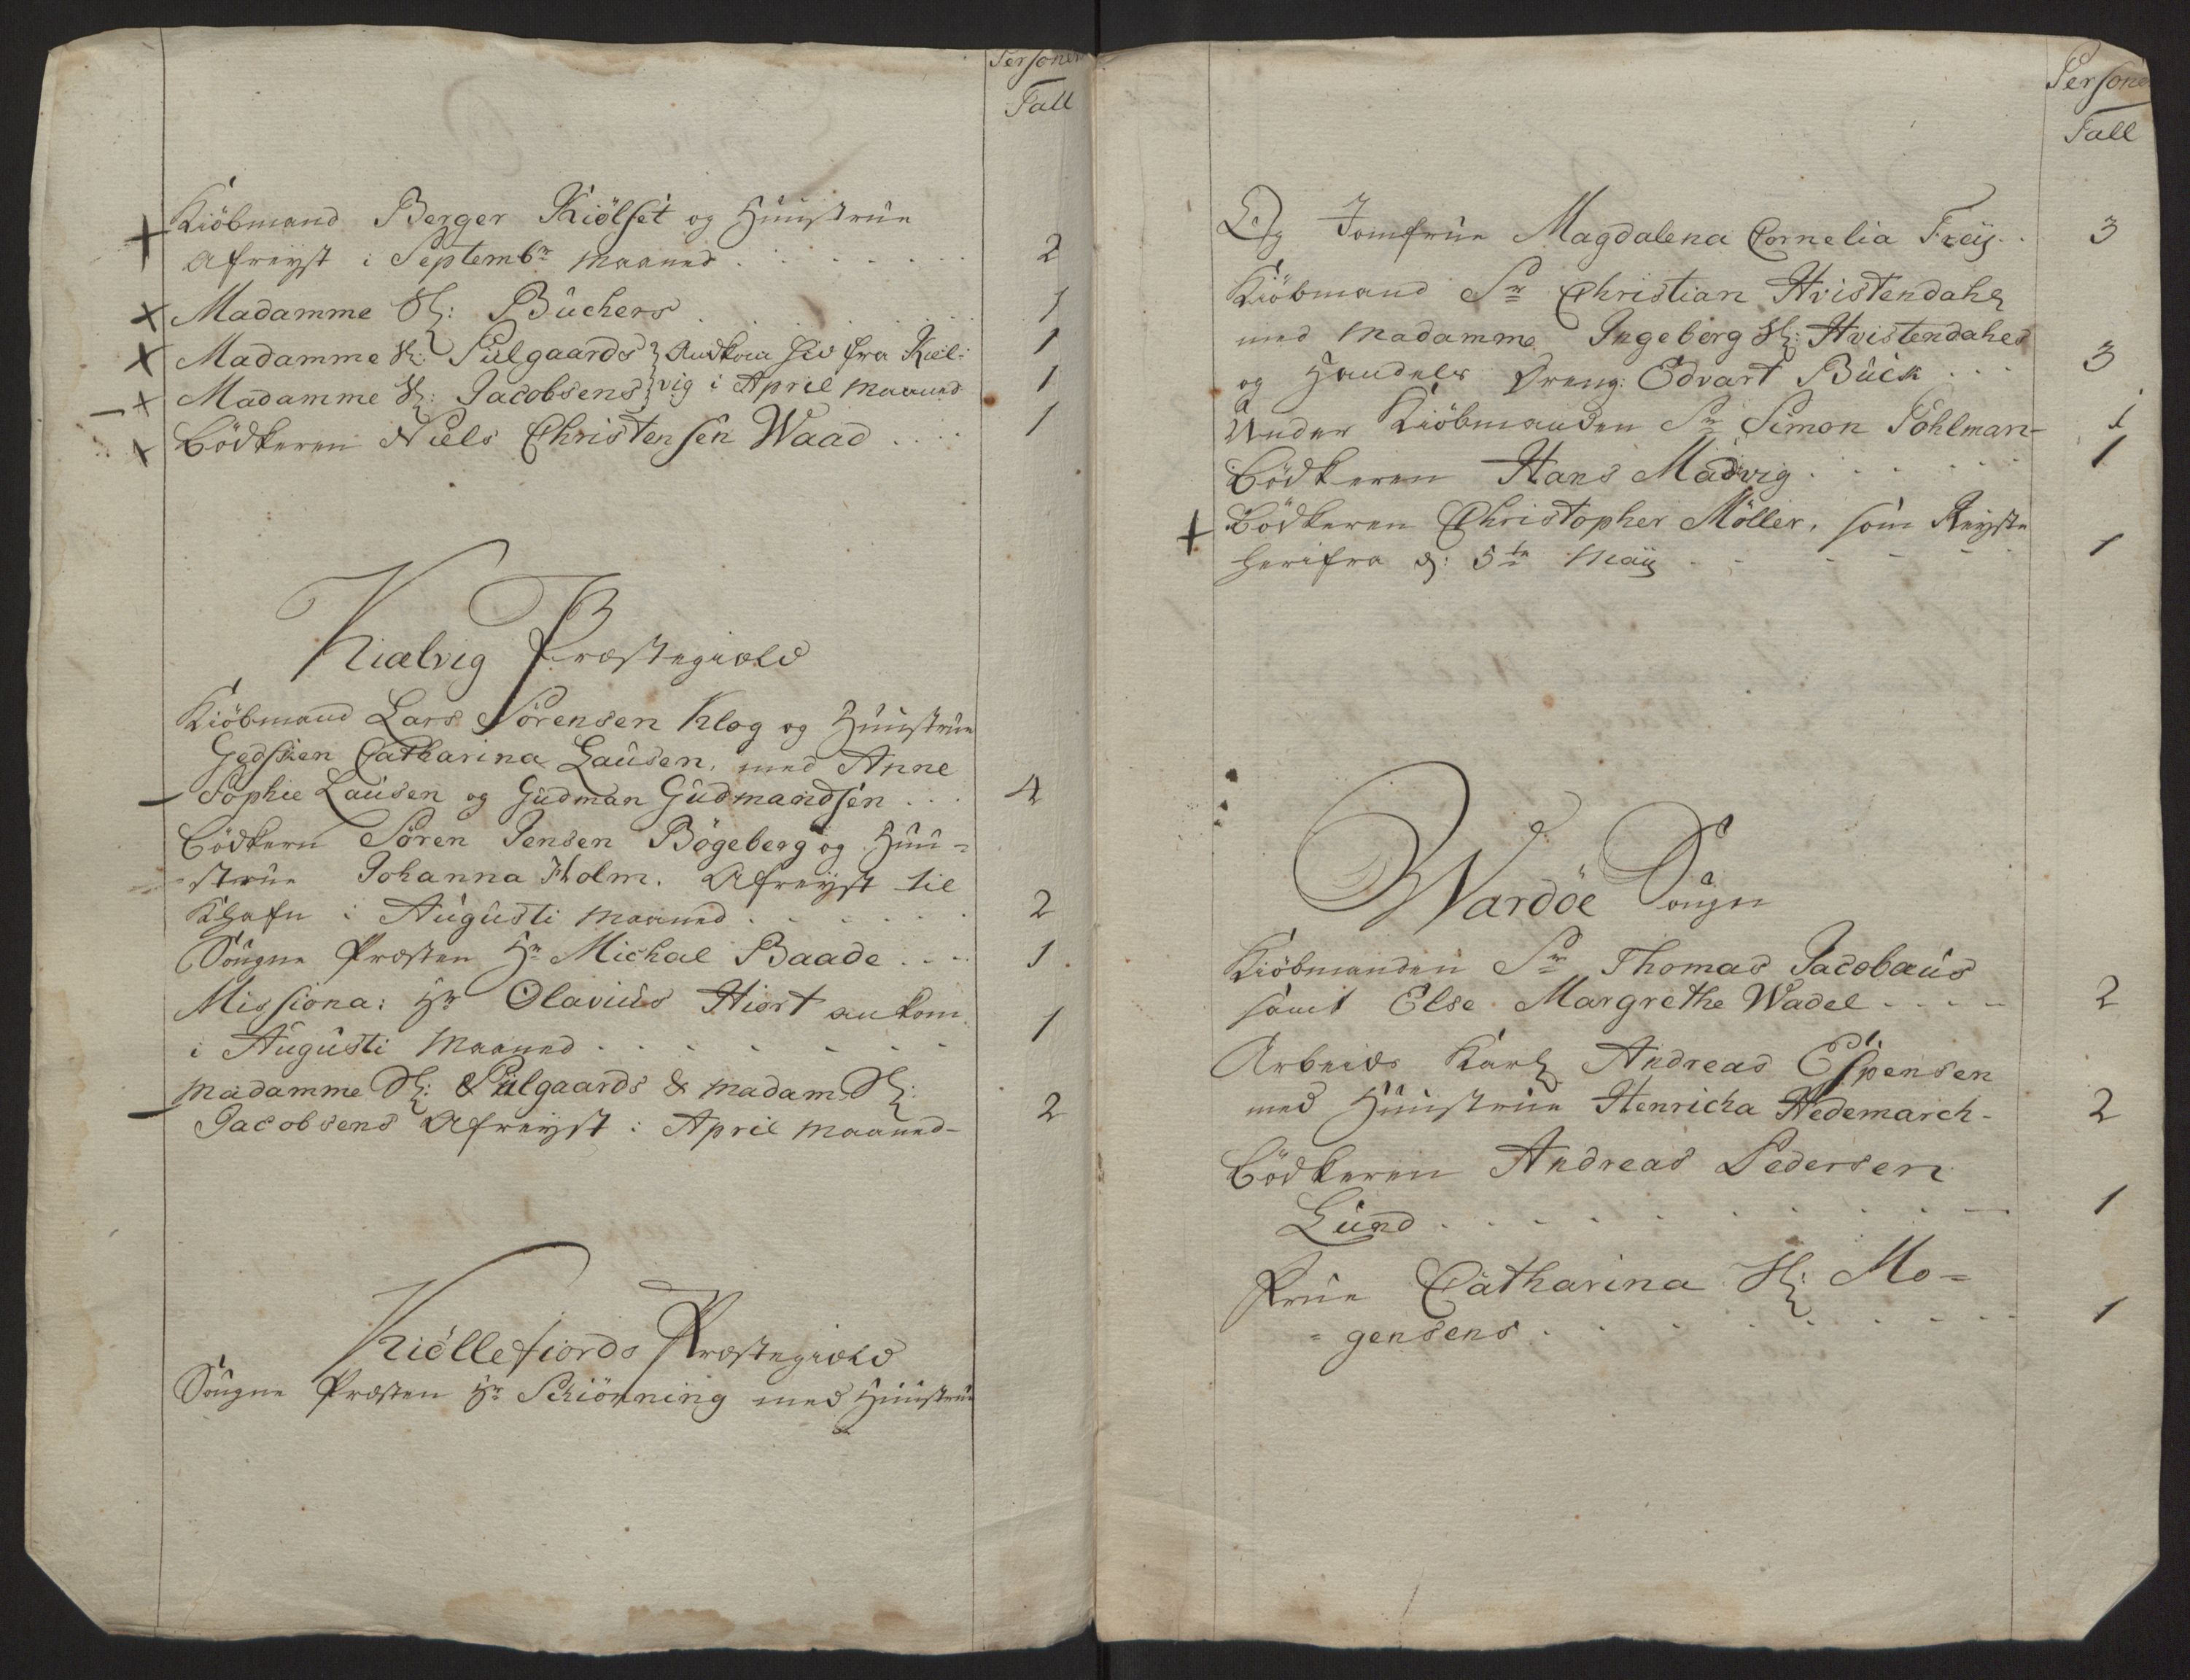 Personer
Tall
Kiöbmand Berger Kiölset og Huustrue
Afreyst i Septembr Maaned . . . . . . 2
Madamme Sl: Büchers . . . . . 1
Madamme Sl: Pülgaards } Andkom hid fra Kiel- 1
Madamme Sl: Jacobsens } vig i April Maaned 1
Bödkeren Niels Christensen Waad . . . . 1
Kialvig Præstegiæld
Kiöbmand Lars Sörensen Klog og Huustrue
Gedskien Catharina Lausen, med Anne
Sophie Lausen og Gudman Gudmandsen . . . 4
Bödkern Sören Jensen Bögeberg og Huu=
strue Johanna Holm. Afreyst til
Khafn i Augusti Maaned . . . . . . 2
Sougne Præsten Hr Michal Baade . . . . 1
Missiona: Hr Olavius Hiort ankom
i Augusti Maaned . . . . . . . 1
Madamme Sl: Pülgaards & Madam Sl:
Jacobsens Afreyst i April Maaned- 2
Kiöllefiords Præstegiæld
Sougne Præsten Hr Schiönning med Huustrue
Personer
Tall
Og Jomfrue Magdalena Cornelia Freÿ . . 3
Kiöbmand Sr Christian Hvistendahl
med Madamme Ingeborg Sl: Hvistendahls
og Handels Dreng: Edvart Buck . . . 3
Under Kiöbmanden Sr Simon Pohlman- 1
Bödkeren Hans Madvig . . . . . . 1
Bödkeren Christopher Möller, som Reyste
herifra d: 5te Maÿ . . . . . 1
Wardöe Sougn
Kiöbmanden Sr Thomas Jacobæus
samt Else Margrethe Wadel . . . . 2
Arbeids Karl Andreas Espensen
med Huustrue Henricha Hedemarch- 2
Bödkeren Andreas Pedersen
Lund . . . . . . . . . . 1
Frue Catharina Sl: Mo=
=gensens . . . . . . . . 1